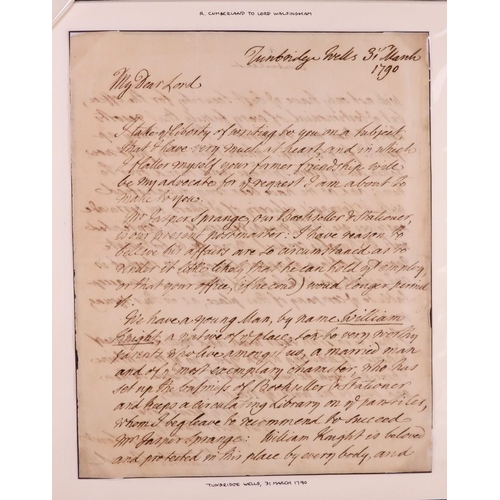 R. CUMBERLAND TO LORD WALSINGHAM
Tunbridge Wells 31st March
1790
My Dear Lord
I take ye liberty of writing to you on a subject,
that I have very much at heart, and in which
I flatter myself your former friendship will
be my advocate for ye request I am about to
make to you.
Mr Jasper Sprange, our Bookseller & Stationer,
is our present postmaster: I have reason to
believe his affairs are so circumstanced as to
render it little likely that he can hold ye employ,
or that your office, (if he cou'd) wou'd longer permit
it.
We have a young Man, by name William
Knight, a native of ye place, son to very worthy
parents who live amongst us, a married man
and of ye most exemplary character, who has
set up the business of Bookseller & Stationer
and keeps a circulating Library on ye pantiles,
whom I beg leave to recommend to succeed
Mr Jasper Sprange: William Knight is beloved
and protected in this place by every body, and
TUNBRIDGE WELLS, 31 MARCH 1790